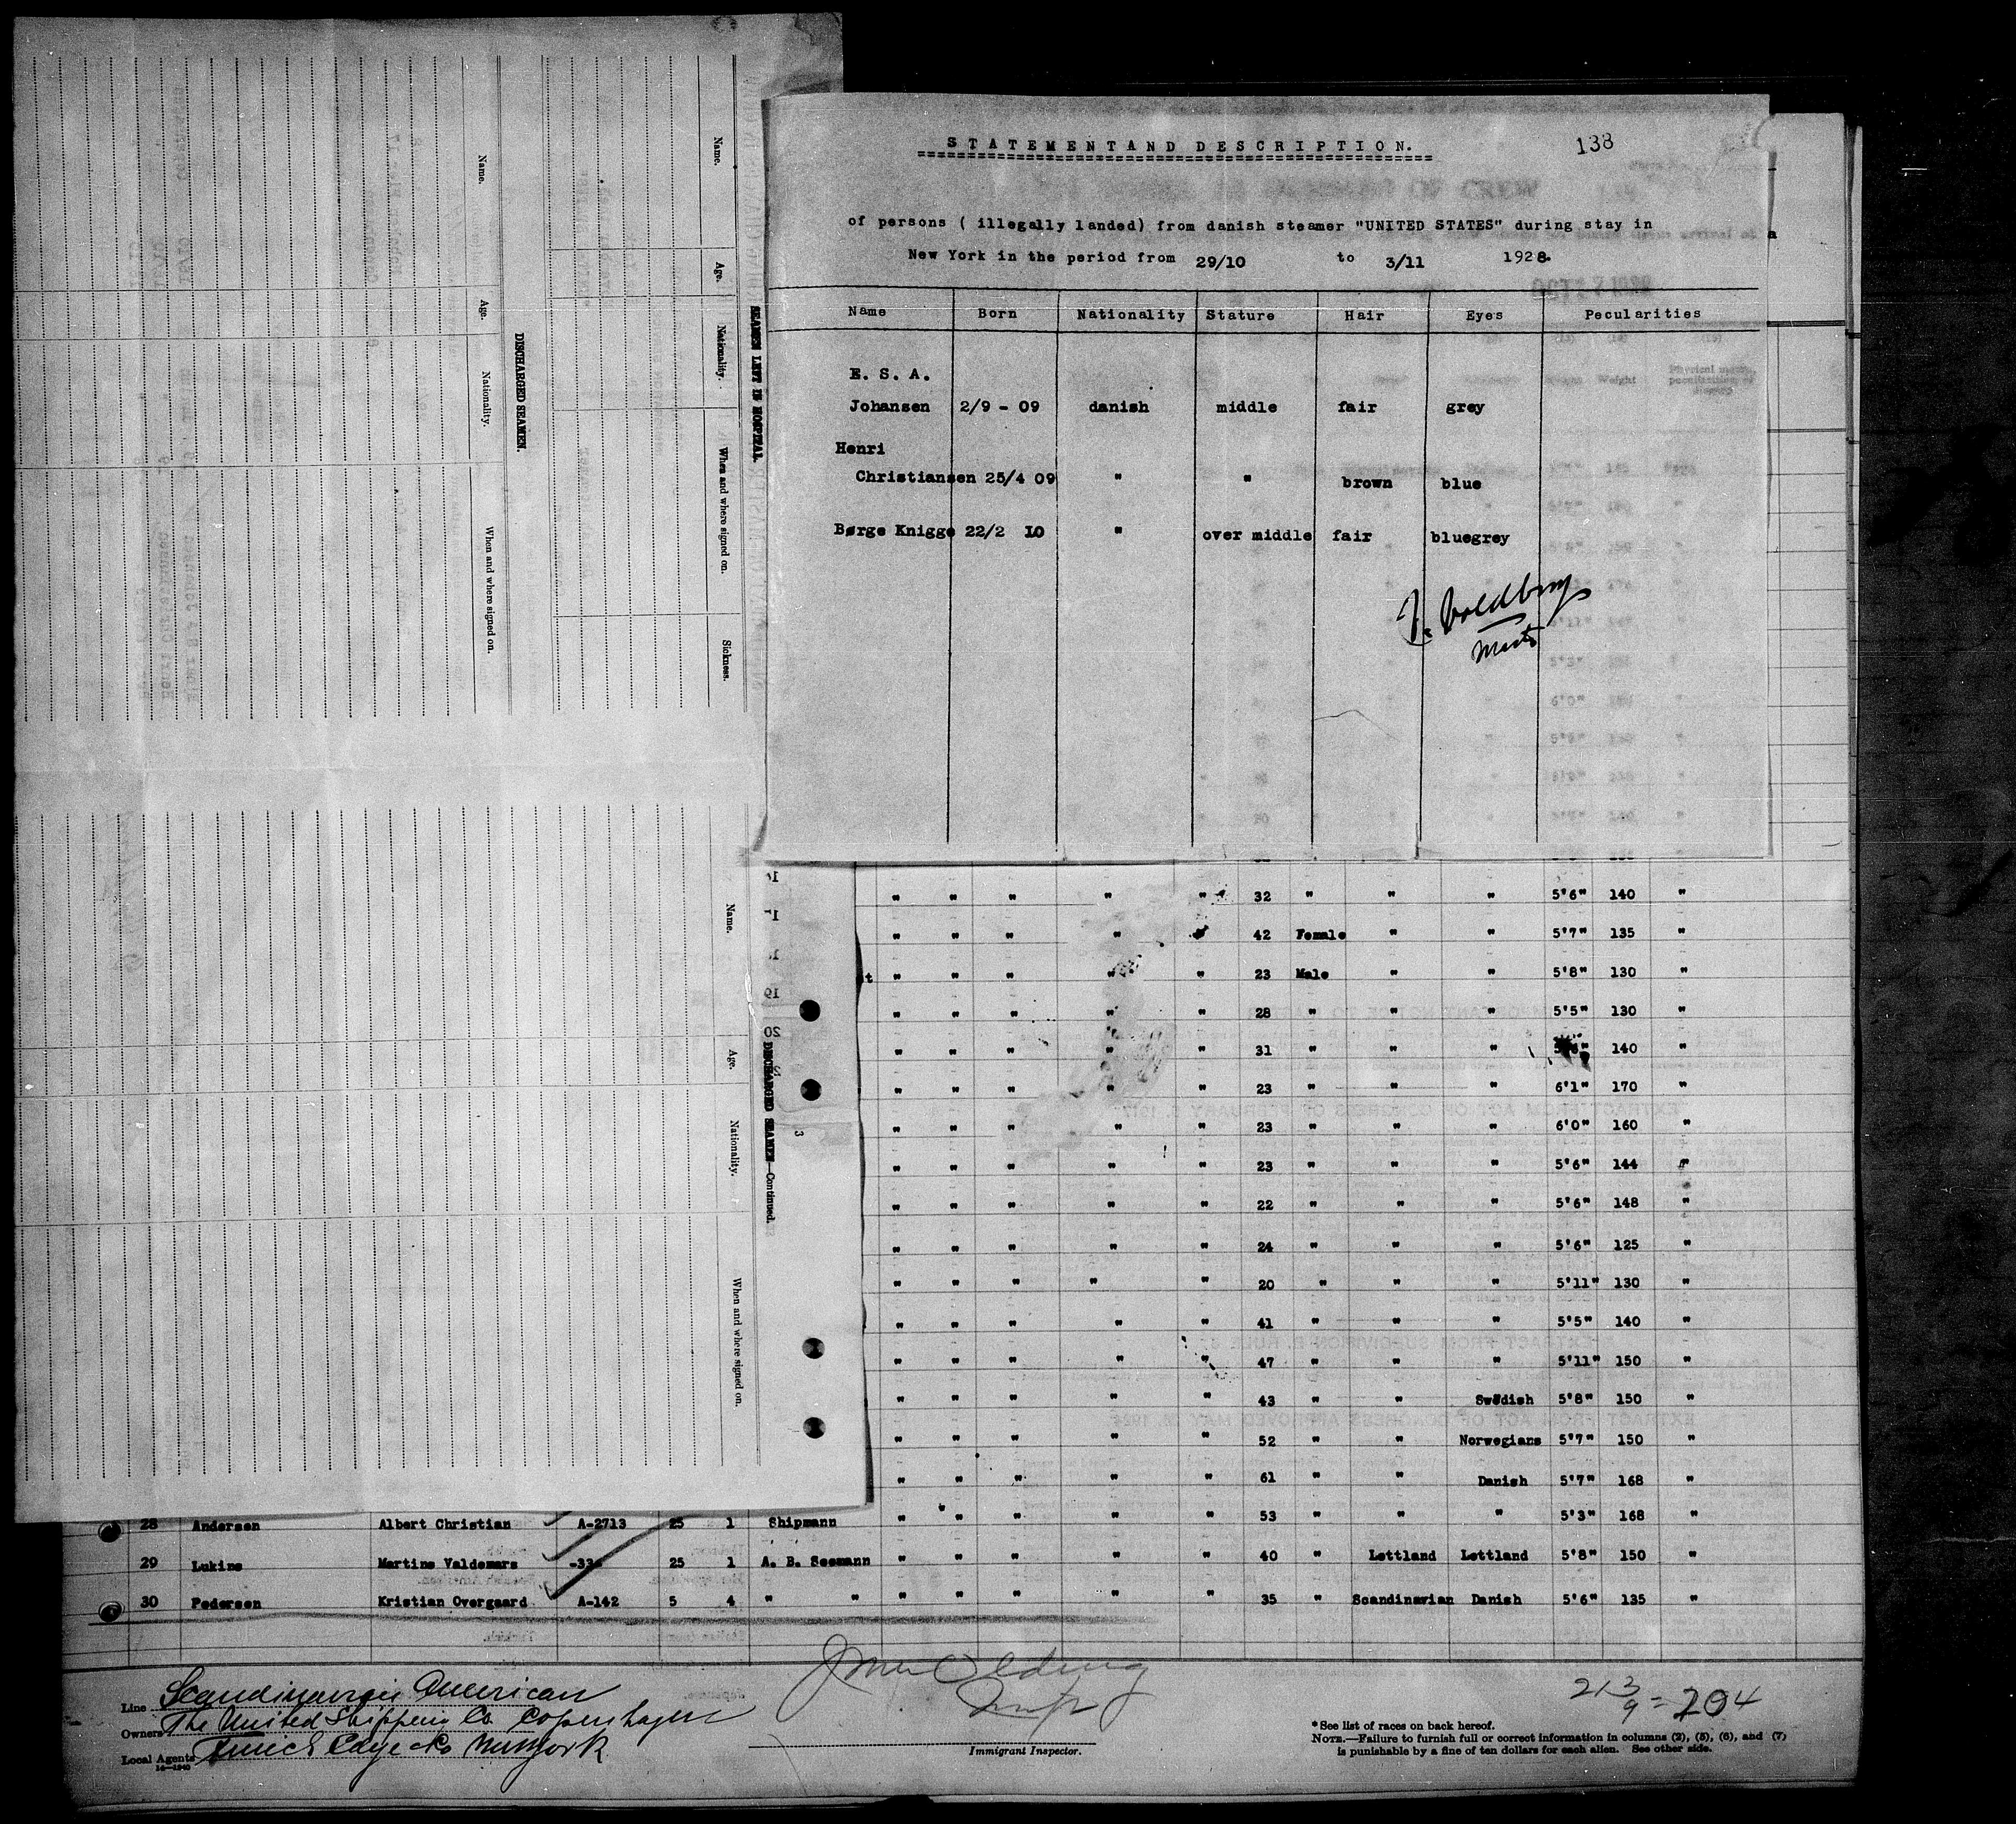 138
STATEMENT AND DESCRIPTION.
of persons ( illegally landed) from danish steamer "UNITED STATES" during stay in
New York in the period from 29/10 to 3/11 1928.
Name Born Nationality Stature Hair Eyes Pecularities
E. S. A.
Johansen 2/9 - 09 danish middle fair grey
Henri
Christiansen 25/4 09 " " brown blue
Børge Knigge 22/2 10 " over middle fair bluegrey
SEAMEN LEFT IN HOSPITAL.
Name. Age. Nationality. When and where signed on. Sickness.
DISCHARGED SEAMEN.
Name. Age. Nationality. When and where signed on.
3
DISCHARGED SEAMEN—Continued.
Name. Age. Nationality. When and where signed on.
" " " " " 32 " " " 5'6" 140 "
" " " " " 42 Female " " 5'7" 135 "
t " " " " " 23 Male " " 5'8" 130 "
" " " " " 28 " " " 5'5" 130 "
" " " " " 31 " " " 140 "
" " " " " 23 " " " 6'1" 170 "
" " " " " 23 " " " 6'0" 160 "
" " " " " 23 " " " 5'6" 144 "
" " " " " 22 " " " 5'6" 148 "
" " " " " 24 " " " 5'6" 125 "
" " " " " 20 " " " 5'11" 130 "
" " " " " 41 " " " 5'5" 140 "
" " " " " 47 " " " 5'11" 150 "
" " " " " 43 " " Swedish 5'8" 150 "
" " " " " 52 " " Norwegians 5'7" 150 "
" " " " " 61 " " Danish 5'7" 168 "
28 Andersen Albert Christian A-2713 25 1 Shipmann " " " " " 53 " " " 5'3" 168 "
29 Lukins Martins Valdemars 25 1 A. B. Seemann " " " " " 40 " Lettland Lettland 5'8" 150 "
30 Pedersen Kristian Overgaard A-142 5 4 " " " " " " " 35 " Scandinavian Danish 5'6" 135 "
Line Scandinavian American
Owners The United Shipping Co Copenhagen
Local Agents Funch Edye & Co New York
14—1240
Immigrant Inspector.
213
9 = 204
*See list of races on back hereof.
NOTE.—Failure to furnish full or correct information in columns (2), (5), (6), and (7)
is punishable by a fine of ten dollars for each alien. See other side.